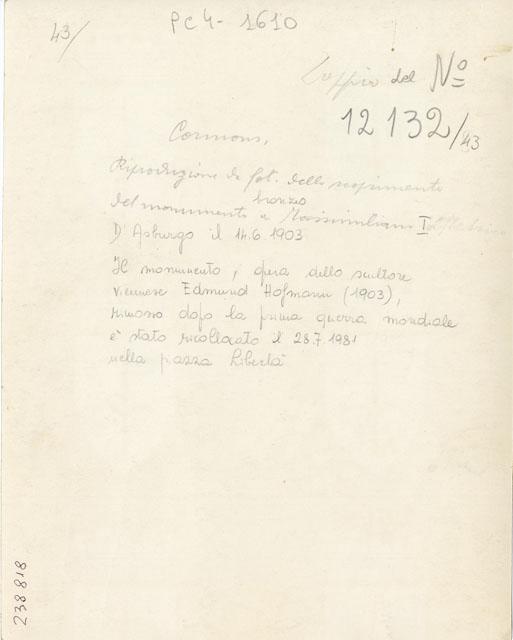 43/
PC4-1610
Doppio del Nº
12132/43
Cormons,
Riproduzione da fot. dello scoprimento
bronzo
del monumento a Massimiliano I
D'Asburgo il 14.6.1903
Il monumento, opera dello scultore
viennese Edmund Hofmann (1903),
rimosso dopo la prima guerra mondiale
è stato ricollocato il 28.7.1981
nella piazza Libertà
238818